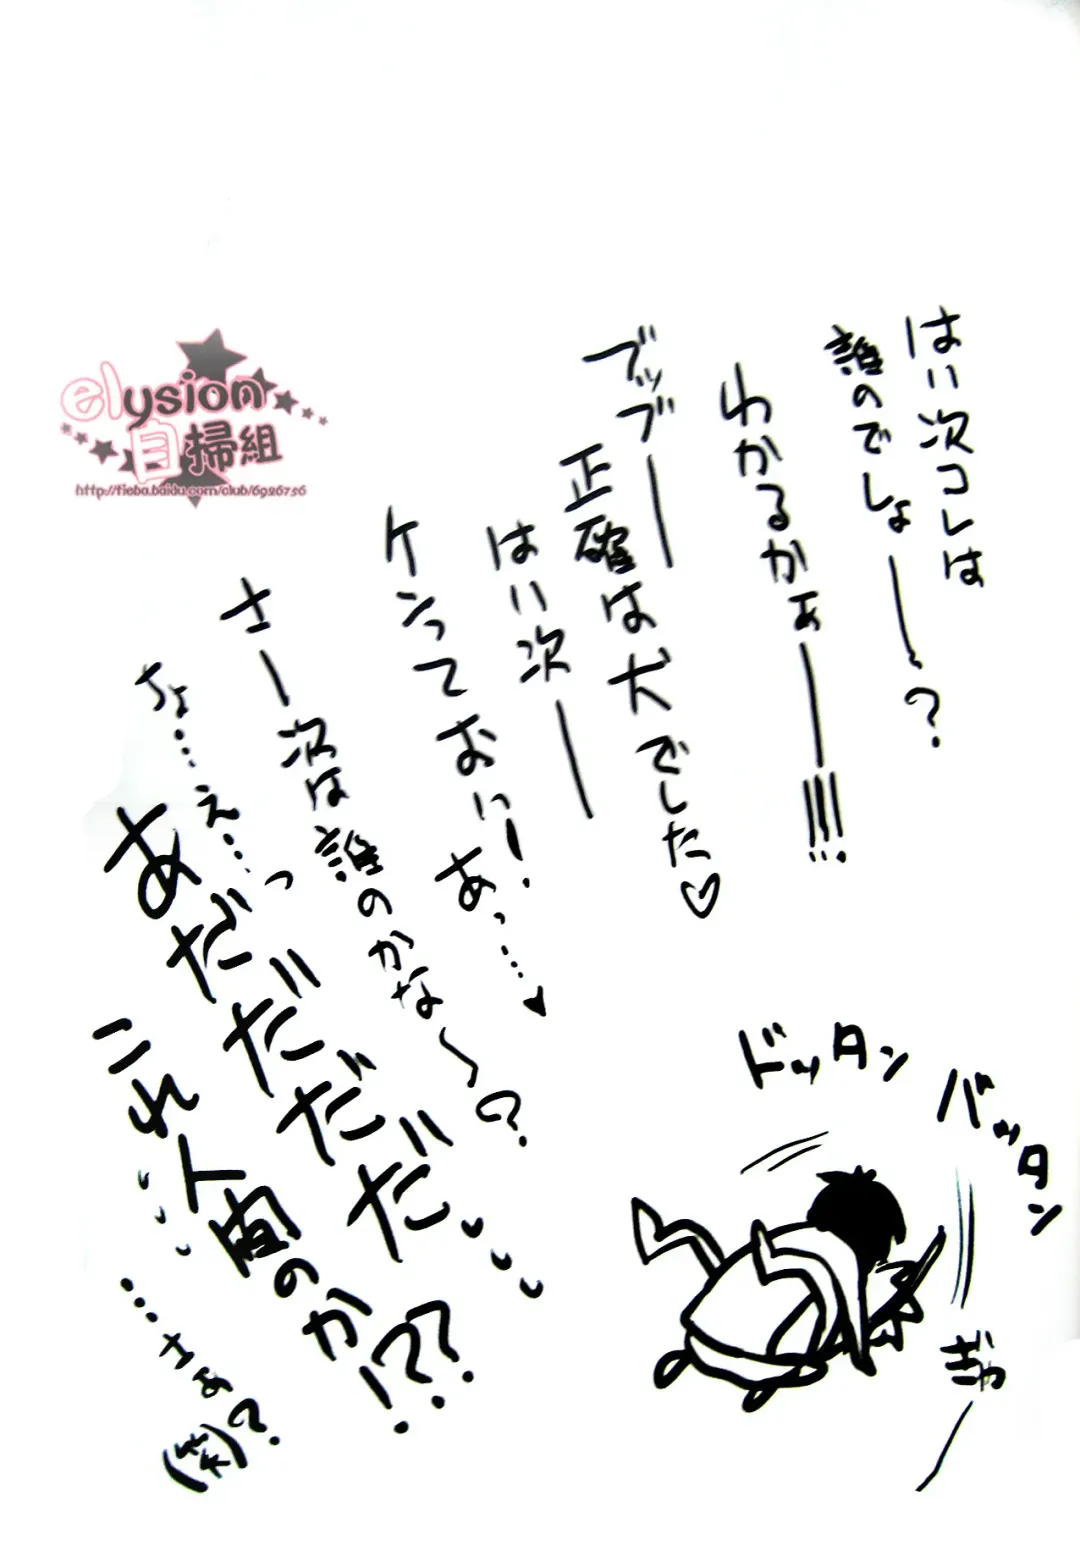 はい次コレは
誰のでしょーー~?
わかるかぁーー!!!!
ブッブーー
正確は犬でした♡
はい次ーー
ケンっておい!あっ…♥
さー次は誰のかな~?
ちょ…え…っ
あだだだだ
これ人間のか!??
…さぁ
(笑)?
ドッタン
バッタン
ぎゃー
elysion
自掃組
http://tieba.baidu.com/club/6926756